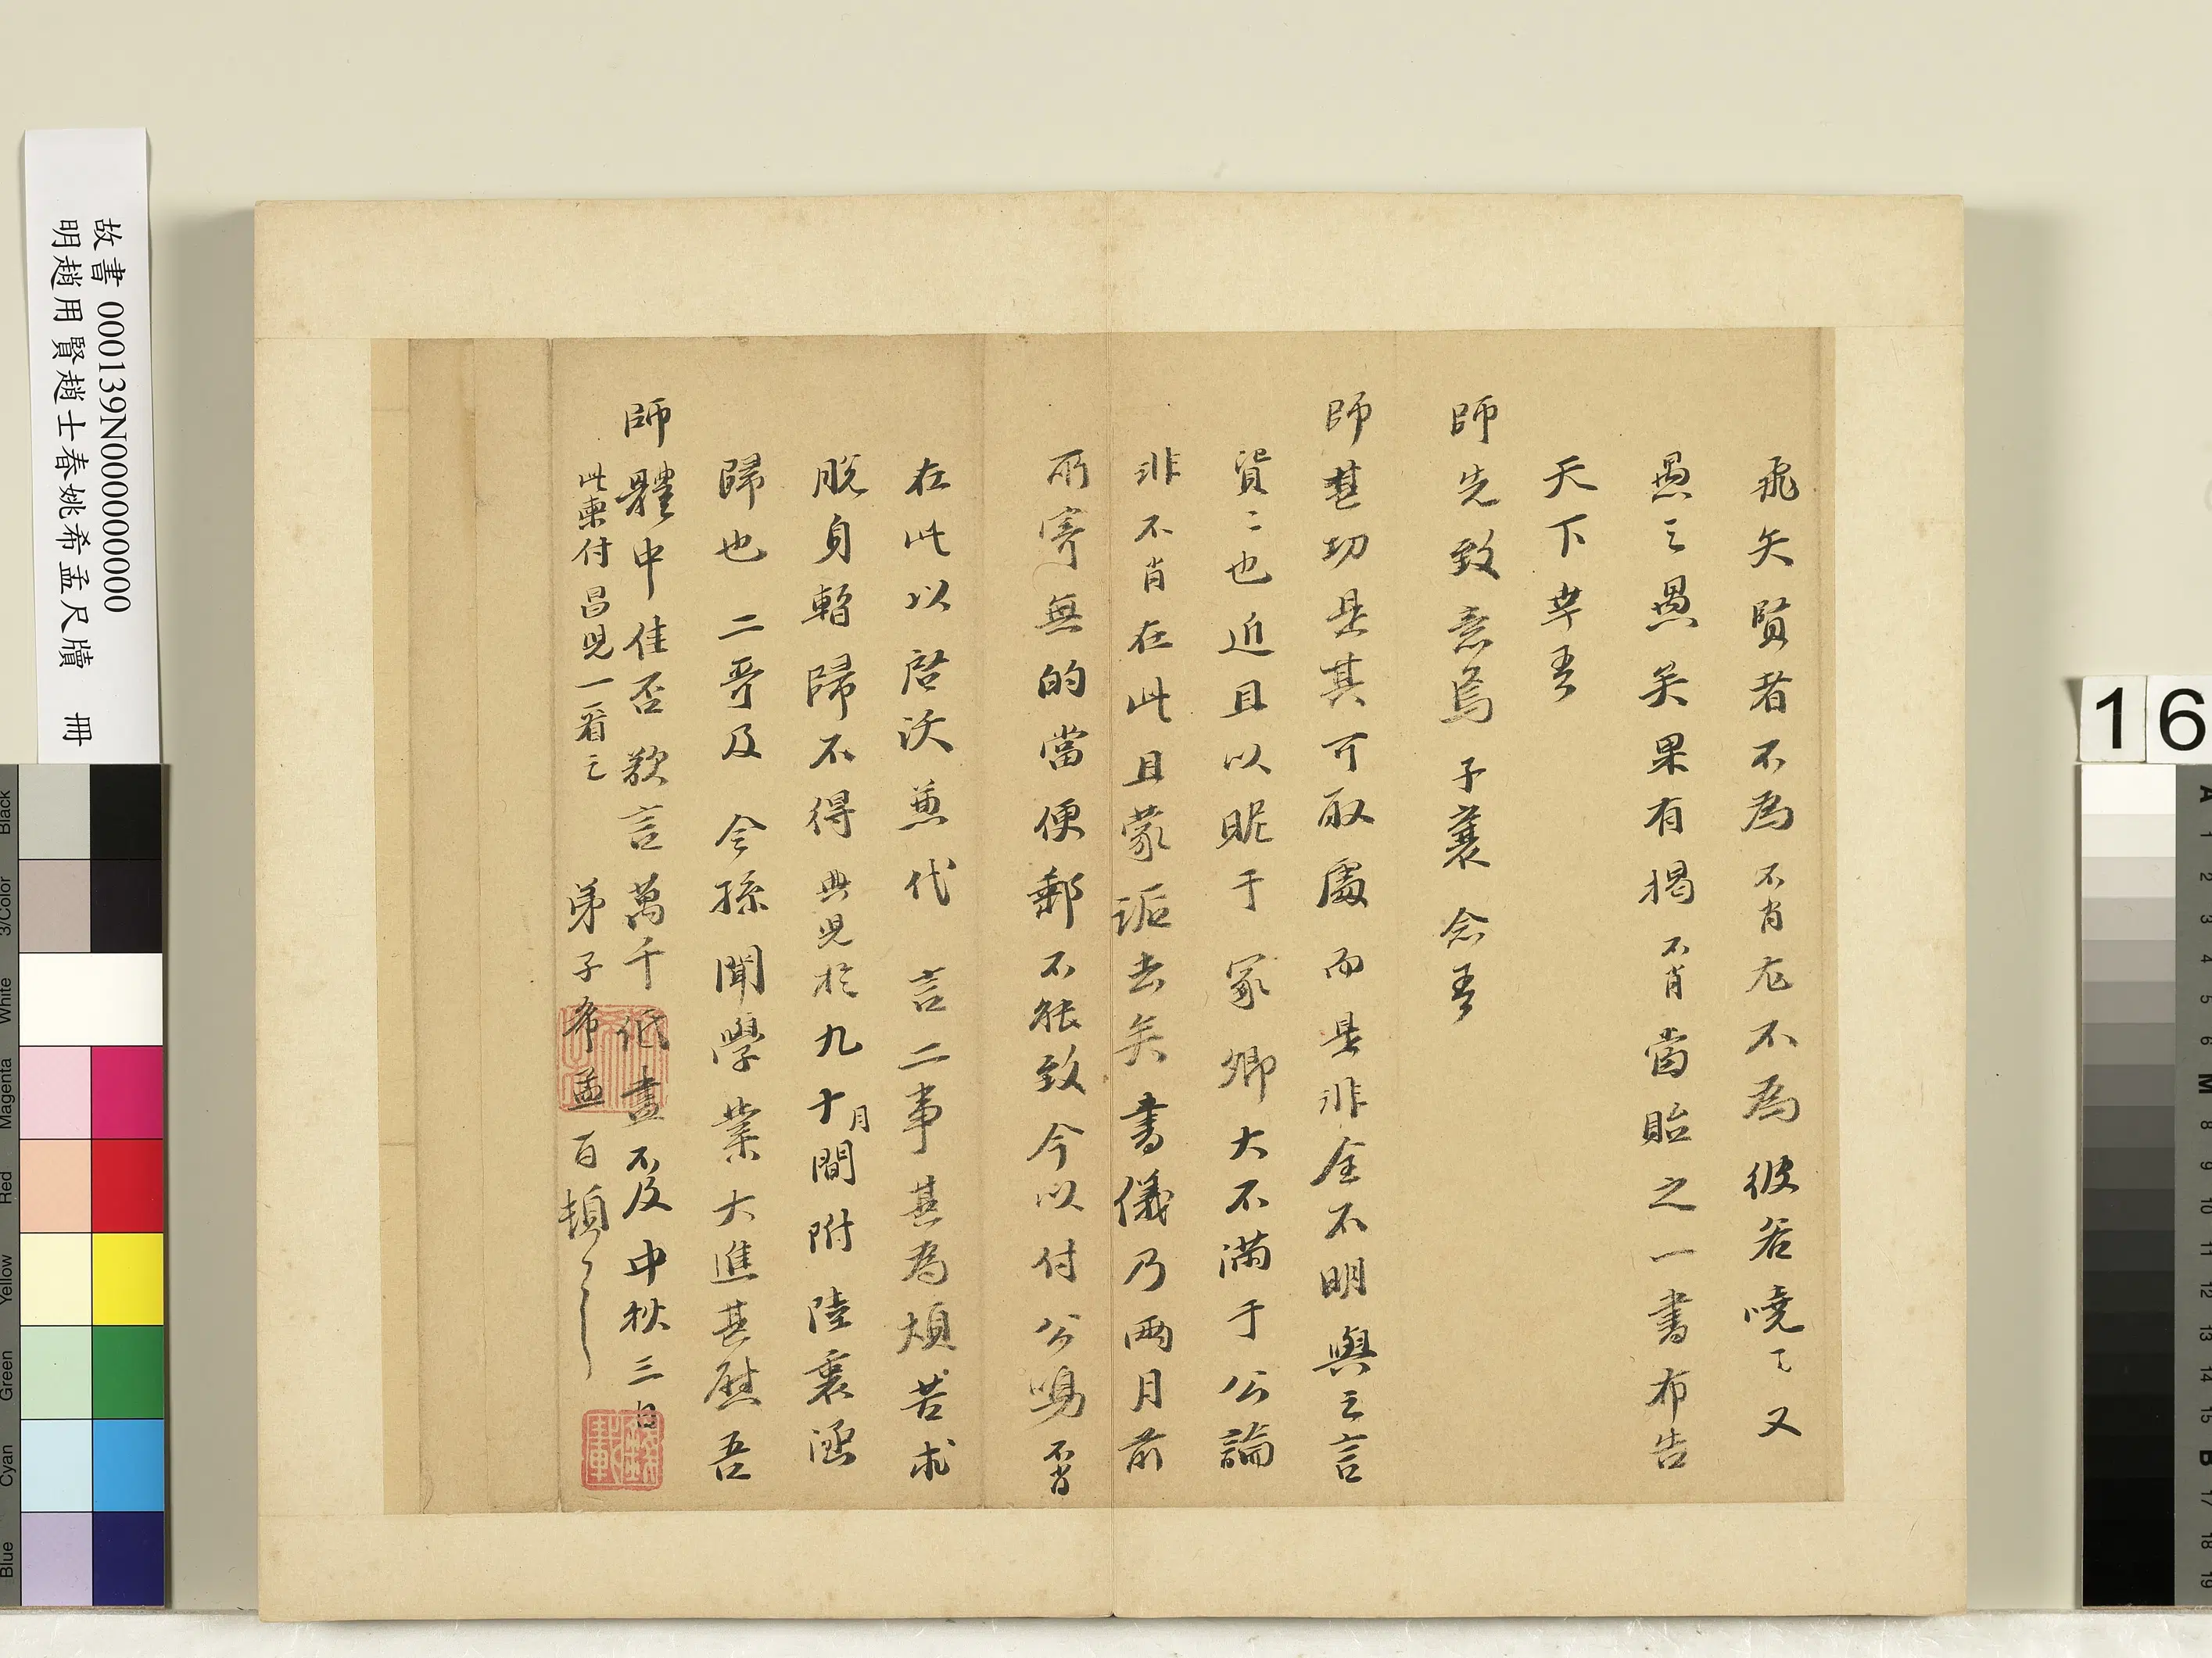 飛矢賢者不為不肖尤不為彼若嘵〻又
愚之愚矣果有揭不肖當貽之一書布告
天下幸吾
師先致意焉子襄念吾
師甚切是其可取處而是非全不明與之言
貿〻也近且以昵于冢卿大不滿于公論
非不肖在此且蒙詬去矣書儀乃兩月前
所寄無的當便郵不能致今以付公鳴不肖
在此以啓沃兼代言二事甚為煩苦求
脫身暫歸不得典兒於九十月間附陸襄
歸也二哥及令孫聞學業大進甚慰吾
師體中佳否欲言萬千紙盡不及中秋三日
此柬付昌兒一看之
弟子希孟百頓
故書000139N000000000
明趙用賢趙士春姚希孟尺牘 冊
16
Black
3/Color
White
Magenta
Red
Yellow
Green
Cyan
Blue
A 1 2 3 4 5 6 M 8 9 10 11 12 13 14 15 B 17 18 19